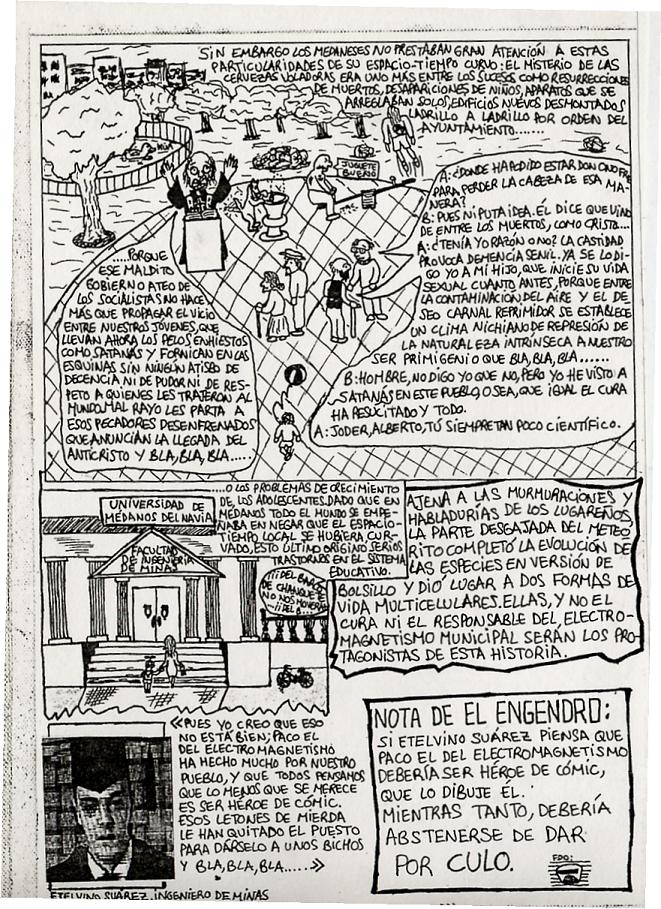 SIN EMBARGO LOS MEDANESES NO PRESTABAN GRAN ATENCIÓN A ESTAS
PARTICULARIDADES DE SU ESPACIO-TIEMPO CURVO: EL MISTERIO DE LAS
CERVEZAS VOLADORAS ERA UNO MÁS ENTRE LOS SUCESOS COMO RESURRECCIONES
DE MUERTOS, DESAPARICIONES DE NIÑOS, APARATOS QUE SE
ARREGLABAN SOLOS, EDIFICIOS NUEVOS DESMONTADOS
LADRILLO A LADRILLO POR ORDEN DEL
AYUNTAMIENTO.......
JUGUETE
BUENO
A: ¿DONDE HA PODIDO ESTAR DON ONOFRE
PARA PERDER LA CABEZA DE ESA MA-
NERA?
B: PUES NI PUTA IDEA. ÉL DICE QUE VINO
DE ENTRE LOS MUERTOS, COMO CRISTO...
A: ¿TENÍA YO RAZÓN O NO? LA CASTIDAD
PROVOCA DEMENCIA SENIL. YA SE LO DI-
GO YO A MI HIJO, QUE INICIE SU VIDA
SEXUAL CUANTO ANTES, PORQUE ENTRE
LA CONTAMINACIÓN DEL AIRE Y EL DE
SEO CARNAL REPRIMIDOR SE ESTABLECE
UN CLIMA NICHIANO DE REPRESIÓN DE
LA NATURALEZA INTRÍNSECA A NUESTRO
SER PRIMIGENIO QUE BLA, BLA, BLA......
B: HOMBRE, NO DIGO YO QUE NO, PERO YO HE VISTO A
SATANÁS EN ESTE PUEBLO, O SEA, QUE IGUAL EL CURA
HA RESUCITADO Y TODO.
A: JODER, ALBERTO, TÚ SIEMPRE TAN POCO CIENTÍFICO.
....PORQUE
ESE MALDITO
GOBIERNO ATEO DE
LOS SOCIALISTAS NO HACE
MÁS QUE PROPAGAR EL VICIO
ENTRE NUESTROS JÓVENES, QUE
LLEVAN AHORA LOS PELOS ENHIESTOS
COMO SATANÁS Y FORNICAN EN LAS
ESQUINAS SIN NINGÚN ATISBO DE
DECENCIA NI DE PUDOR NI DE RES-
PETO A QUIENES LES TRAJERON AL
MUNDO. MAL RAYO LES PARTA A
ESOS PECADORES DESENFRENADOS
QUE ANUNCIAN LA LLEGADA DEL
ANTICRISTO Y BLA, BLA, BLA.....
....O LOS PROBLEMAS DE CRECIMIENTO
DE LOS ADOLESCENTES. DADO QUE EN
MÉDANOS TODO EL MUNDO SE EMPE-
ÑABA EN NEGAR QUE EL ESPACIO-
TIEMPO LOCAL SE HUBIERA CUR-
VADO, ESTO ÚLTIMO ORIGINÓ SERIOS
TRASTORNOS EN EL SISTEMA
EDUCATIVO.
UNIVERSIDAD DE
MÉDANOS DEL NAVIA
FACULTAD
DE INGENIERÍA
DE MINAS
¡¡¡DEL BAR
DE CHANQUETE
NO NOS MOVERÁN
¡¡DEL B...
AJENA A LAS MURMURACIONES Y
HABLADURÍAS DE LOS LUGAREÑOS,
LA PARTE DESGAJADA DEL METEO
RITO COMPLETÓ LA EVOLUCIÓN DE
LAS ESPECIES EN VERSIÓN DE
BOLSILLO Y DIÓ LUGAR A DOS FORMAS DE
VIDA MULTICELULARES. ELLAS, Y NO EL
CURA NI EL RESPONSABLE DEL ELECTRO-
MAGNETISMO MUNICIPAL SERÁN LOS PRO-
TAGONISTAS DE ESTA HISTORIA.
«PUES YO CREO QUE ESO
NO ESTÁ BIEN; PACO EL
DEL ELECTROMAGNETISMO
HA HECHO MUCHO POR NUESTRO
PUEBLO, Y QUE TODOS PENSAMOS
QUE LO MENOS QUE SE MERECE
ES SER HÉROE DE CÓMIC.
ESOS LETONES DE MIERDA
LE HAN QUITADO EL PUESTO
PARA DÁRSELO A UNOS BICHOS
Y BLA, BLA, BLA.....»
ETELVINO SUÁREZ, INGENIERO DE MINAS
NOTA DE EL ENGENDRO:
SI ETELVINO SUÁREZ PIENSA QUE
PACO EL DEL ELECTROMAGNETISMO
DEBERÍA SER HÉROE DE CÓMIC,
QUE LO DIBUJE ÉL.
MIENTRAS TANTO, DEBERÍA
ABSTENERSE DE DAR
POR CULO.
FDO: